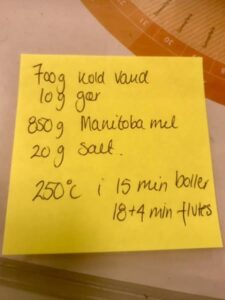 700g kold vand
10g gær
850g Manitoba mel
20g salt.
250°c i 15 min boller
18+4 min flutes